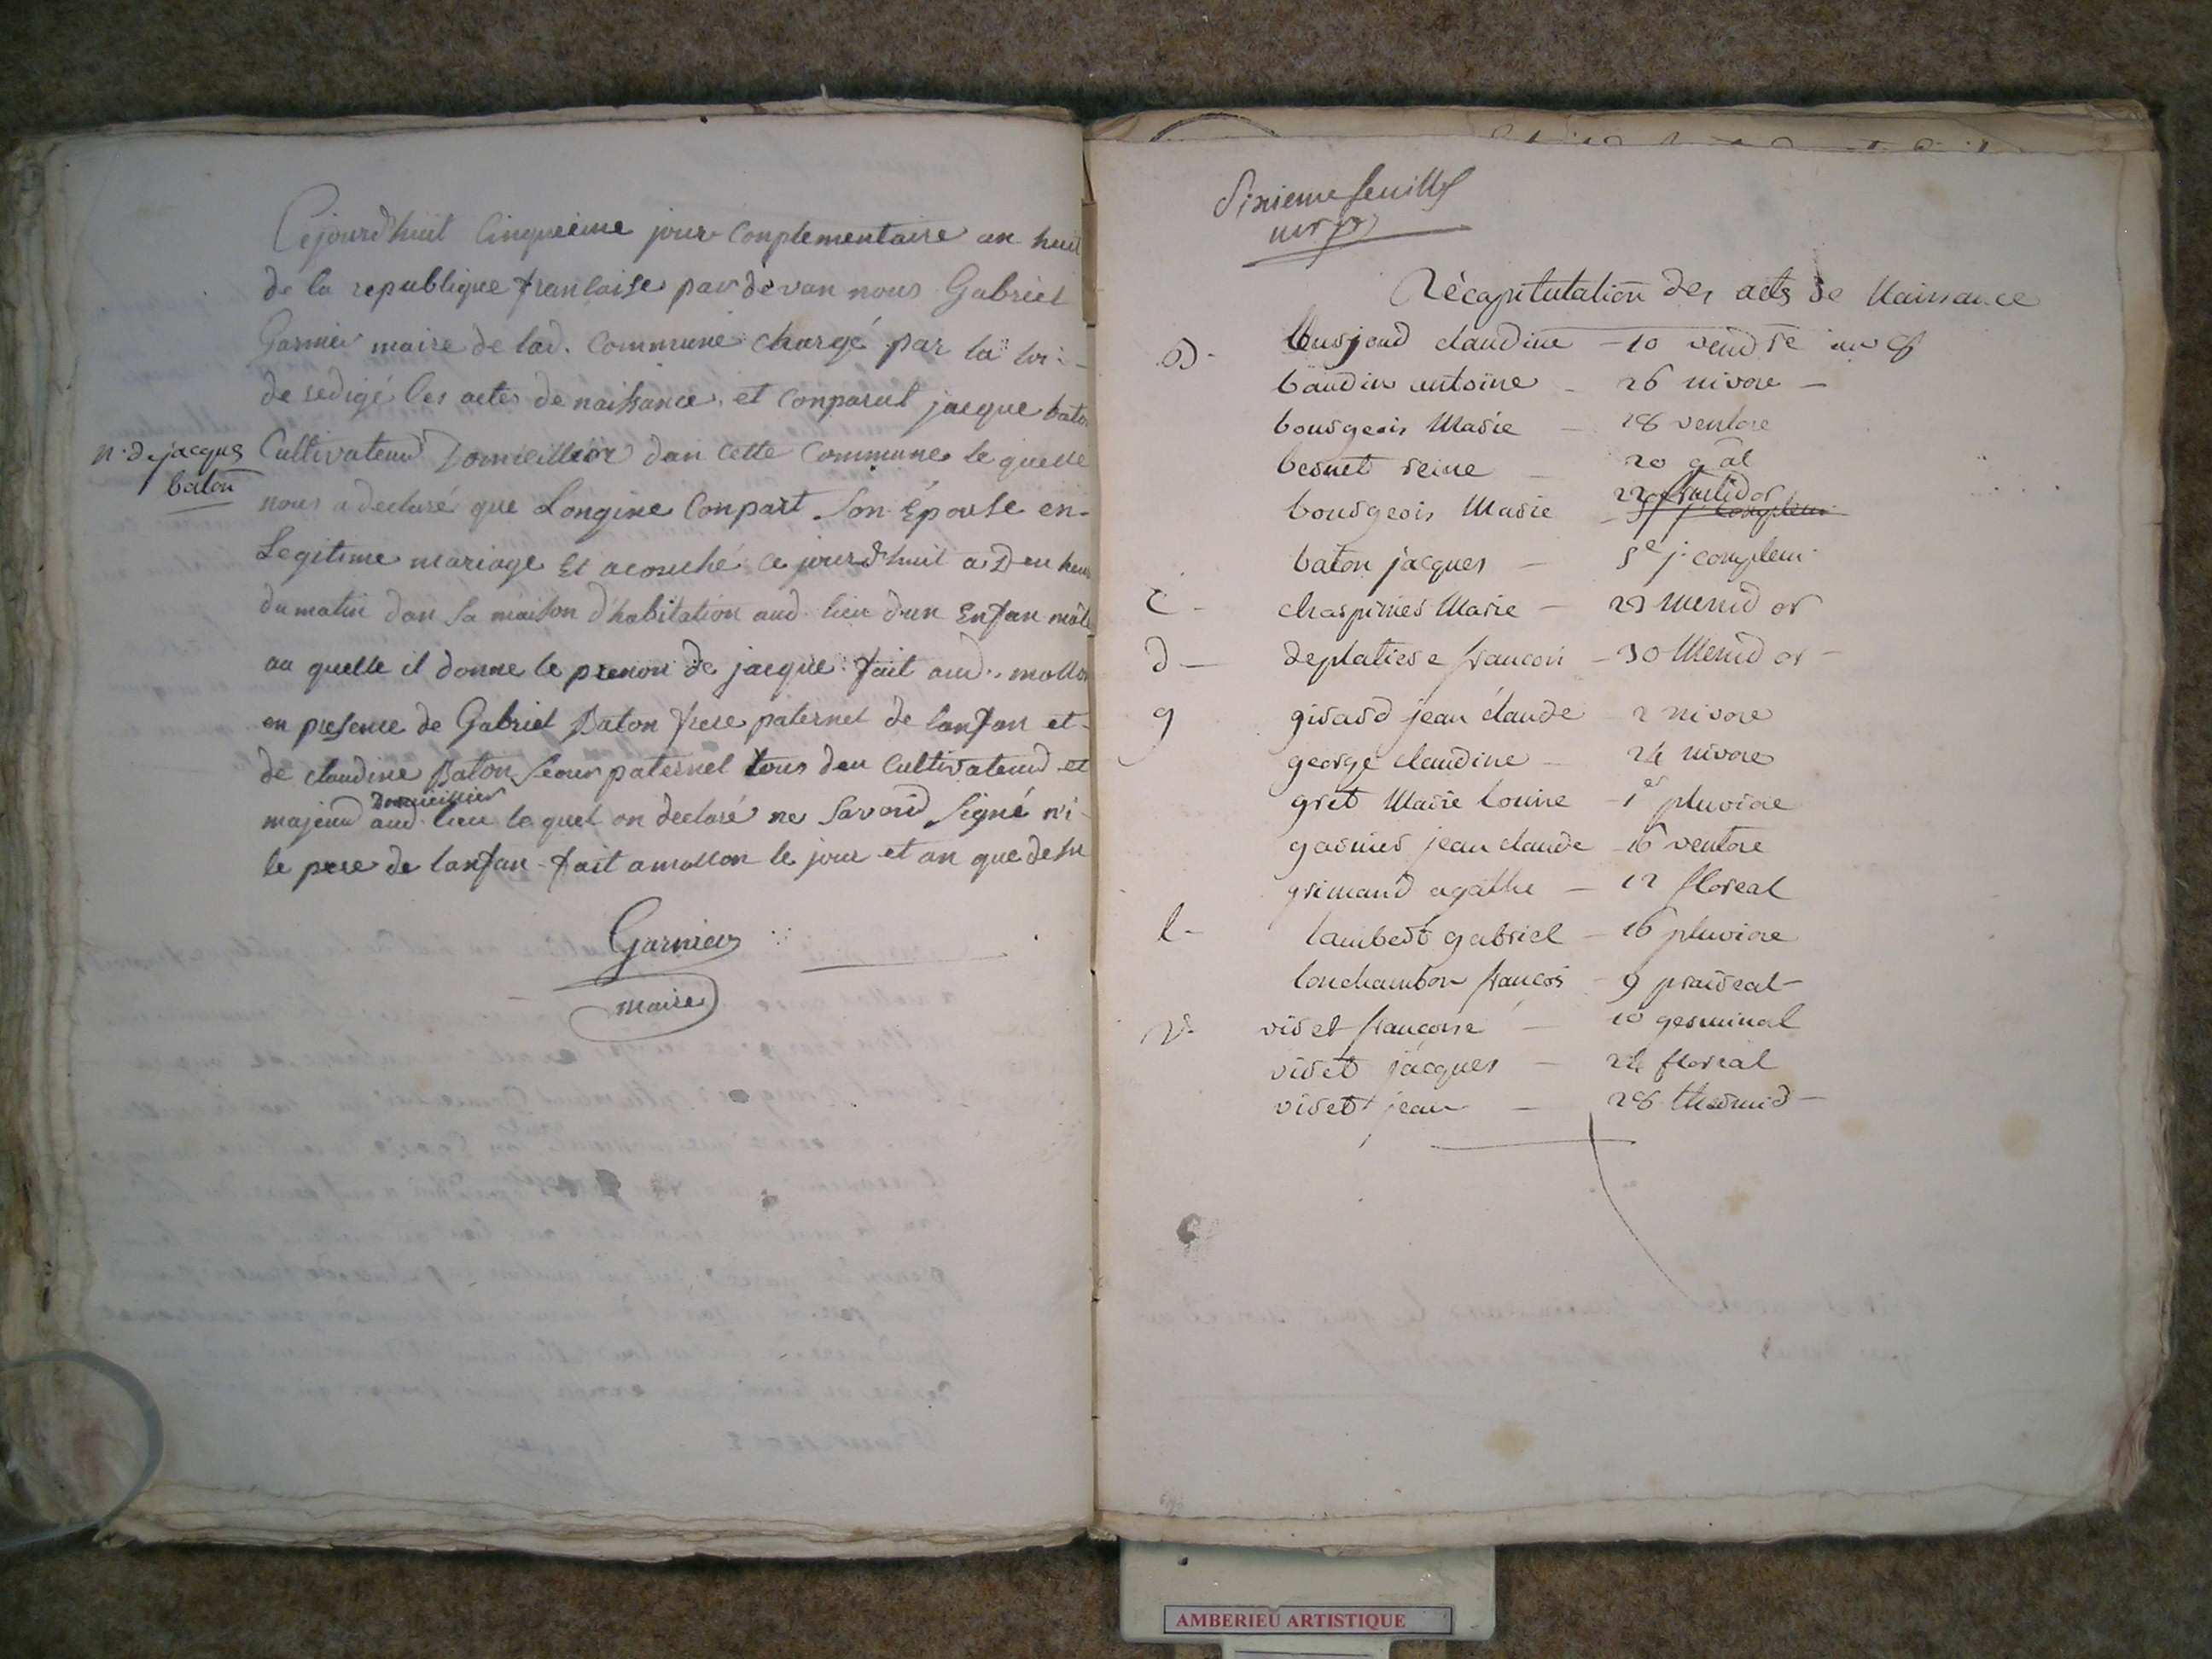 Cejourdhuit Cinquieme jour Conplementaire an huit
de la republique francaise par devan nous Gabriel
Garnier maire de lad. Commune chargé par la loi
de redigé les actes de naissance et Conparut jacque baton
n. de jacques
baton
Cultivateur Domicillier dan cette Commune le quelle
nous a declaré que Longine Conpart Son Épouse en-
Legitime mariage Et acouché ce jourdhuit a Deu heur
du matin dan Sa maison d'habitation aud. lieu d'un Enfan mâle
au quelle il donne le prenon de jacque fait aud. mollon
en presence de Gabriel Baton frere paternel de lanfan et-
de claudine Baton Seour paternel tous deu Cultivateur et
Domicillier
majeur aud. lieu le quel on declaré ne Savoir Signé n'i
le pere de lanfan - fait a mollon le jour et an que desu
Garnier
maire
Sixieme feuillet
Récapitulation des acts de Naissance
B. burjoud claudine - 10 vend.re an 8
baudin antoine - 26 nivose -
bourgeois Marie - 28 ventose
bernet reine - 20 g.al
bourgeois Marie 22 fructidor
baton jacques - 5e j. complem.
C - charpines Marie - 29 Messid or
d - deplatiere francois - 30 Messid or -
g girard jean claude - 2 nivose
george claudine - 24 nivose
gret Marie Louise - 1er pluviose
garnier jean claude - 16 ventose
grimaud agathe - 12 floreal
l - lambert gabriel - 16 pluviose
lonchambon francois - 9 prairial -
v. viret francoise - 10 germinal
viret jacques - 24 floreal
viret jean - 28 thermid -
AMBERIEU ARTISTIQUE